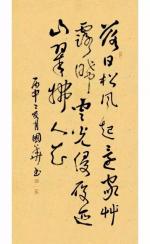 落日松風起還家艸
露晞雲光侵履迹
山翠拂人衣
丙申之夏月國華书